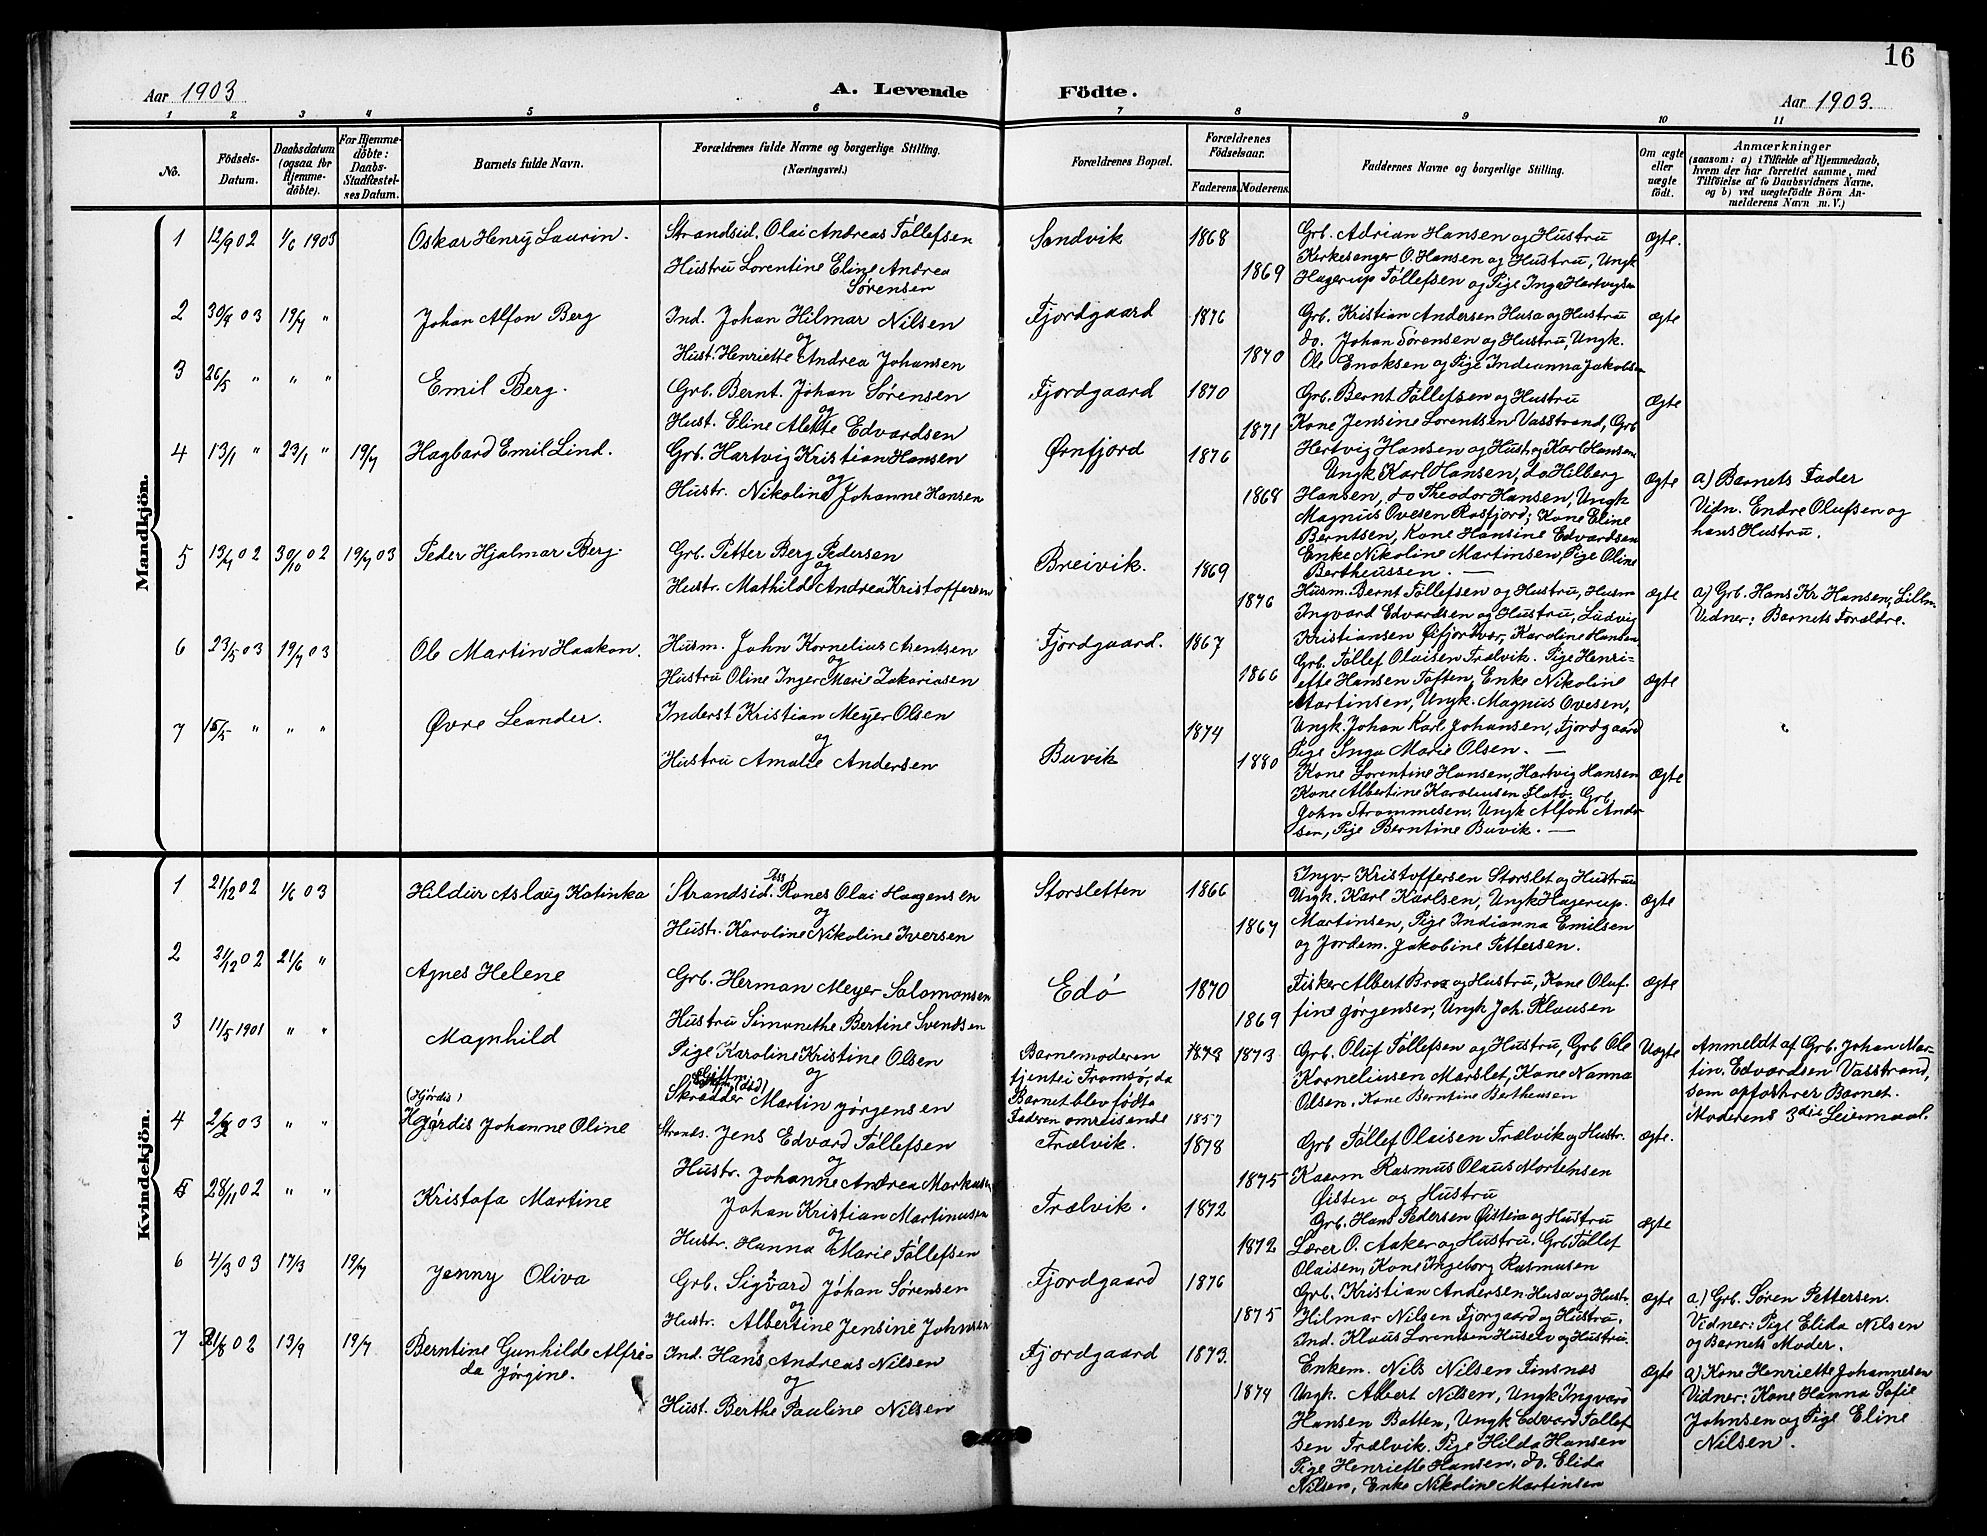 16
Aar 1903
A. Levende Födte.
Aar 1903.
1 2 3 4 5 6 7 8 9 10 11
No.
Födsels-Datum.
Daabsdatum (ogsaa for Hjemme-döbte).
For Hjemme-döbte: Daabs-Stadfæstel-ses Datum.
Barnets fulde Navn.
Forældrenes fulde Navne og borgerlige Stilling. (Næringsvei.)
Forældrenes Bopæl.
Forældrenes Födselsaar.
Faderens. Moderens.
Faddernes Navne og borgerlige Stilling.
Om ægte eller uægte födt.
Anmærkninger
(saasom: a) i Tilfælde af Hjemmedaab, hvem der har forrettet samme, med Tilföielse af to Daabsvidners Navne, og b) ved uægtefödte Börn An-melderens Navn m. V.)
Mandkjön.
1 12/9 02 1/6 1903 Oskar Henry Laurin. Strandsid. Olai Andreas Tøllefsen
Hustru Lorentine Eline Andrea
Sørensen
Sandvik 1868 1869
Grb. Adrian Hansen og Hustru
Kirkesanger O. Hansen og Hustru, Ungk
Hagerup Tøllefsen og Pige Inga Hartvigsen
Ægte.
2 30/4 03 19/7 " Johan Alfon Berg Ind. Johan Hilmar Nilsen
og
Hust. Henriette Andrea Johansen
Fjordgaard 1876 1870
Grb. Kristian Andersen Husø og Hustru
do. Johan Sørensen og Hustru, Ungk.
Ole Enoksen og Pige Indianna Jakobsen
Ægte
3 26/5 " " " Emil Berg. Grb. Bernt Johan Sørensen
og
Hust. Eline Alette Edvardsen
Fjordgaard 1870 1871
Grb. Bernt Tøllefsen og Hustru
Kone Jensine Lorentsen Vasstrand, Grb
Hertvig Hansen og Hust. og Karl Hansen
Ægte
4 13/1 " 23/1 " 19/7 Hagbard Emil Lind. Grb. Hartvig Kristian Hansen
og
Hustr. Nikoline Johanne Hansen
Ørnfjord 1876 1868
Ungk Karl Hansen, do Hilberg
Hansen, do Theodor Hansen, Ungk
Magnus Ovesen Rosfjord; Kone Eline
Berntsen, Kone Hansine Edvardsen
Enke Nikoline Martinsen, Pige Oline
Bertheussen. —
Ægte
a) Barnets Fader
Vidn. Endre Olufsen og
hans Hustru.
5 13/4 02 30/10 02 19/7 03 Peder Hjalmar Berg. Grb. Petter Berg Pedersen
og
Hustr. Mathilde Andrea Kristoffersen
Breivik. 1869 1876
Husm. Bernt Tøllefsen og Hustru, Husm
Ingvard Edvardsen og Hustru, Ludvig
Kristiansen Øifjordvær, Karoline Hansen
Ægte
a) Grb. Hans Kr Hansen, Lillm.
Vidner: Barnets Forældre.
6 23/5 03 19/7 03 Ole Martin Haakon. Husm. John Kornelius Arentsen
og
Hustru Oline Inger Marie Zakariasen
Fjordgaard. 1867 1866
Grb. Tøllef Olaisen Trælvik. Pige Henri-
ette Hansen Toften, Enke Nikoline
Martinsen, Ungk. Magnus Ovesen,
Ungk. Johan Karl Johansen, Fjordgaard
Pige Inga Marie Olsen. —
Ægte
7 15/5 " " " Øvre Leander. Inderst Kristian Meyer Olsen
og
Hustru Amalie Andersen
Buvik 1874 1880
Kone Lorentine Hansen, Hartvig Hansen
Kone Albertine Karoliusen Flatø. Grb
John Strømmesen, Ungk Alfon Ander-
sen, Pige Berntine Buvik. —
Ægte
Kvindekjön.
1 21/12 02 1/6 03 Hildur Aslaug Katinka Strandsid. Ranes Olai Haagensen
og
Hustr. Karoline Nikoline Iversen
Storsletten 1866 1867
Ingvr Kristoffersen Storslet og Hustru
Ungk. Karl Karlsen, Ungk Hagerup.
Martinsen, Pige Indianna Emilsen
og Jordem. Jakobine Pettersen.
Ægte
2 21/12 02 21/6 " Agnes Helene Grb. Herman Meyer Salomonsen
Hustru Simonethe Bertine Svendsen
Edø 1870 1869
Fisker Albert Brox og Hustru, Kone Oluf-
fine Jørgensen, Ungk Joh. Klausen
Ægte
3 11/5 1901 " " Magnhild Pige Karoline Kristine Olsen
og
Giftm.
Skrædder Martin Jørgensen
Barnemoderen
tjente i Tromsø, da
Barnet blev født.
Faderen omreisende
1873 1873 1857
Grb. Oluf Tøllefsen og Hustru, Grb Ole
Korneliusen Marslet, Kone Nanna
Olsen, Kone Berntine Bertheusen
Uægte
Anmeldt af Grb. Johan Mar-
tin, Edvardsen Vasstrand,
som opfostrer Barnet.
Moderens 3die Leiermaal.
4 2/2 03 " " (Hjørdis) Hjørdis Johanne Oline Strands. Jens Edvard Tøllefsen
og
Hustr. Johanne Andrea Markusen
Trælvik. 1878 1875
Grb Tøllef Olaisen Trælvik og Hustr.
Kaarm Rasmus Olaus Mortensen
Øisten og Hustru
Ægte.
5 28/11 02 " " Kristofa Martine Johan Kristian Martinusen
og
Hustr. Hanna Marie Tøllefsen
Trælvik. 1872 1872
Grb. Hans Pedersen Øistein og Hustru
Lærer O. Aaker og Hustru. Grb Tøllef
Olaisen, Kone Ingeborg Rasmusen
Ægte
6 4/3 03 17/3 19/7 Jenny Oliva Grb. Sigvard Johan Sørensen
og
Hustr. Albertine Jensine Johnsen
Fjordgaard 1876 1875
Grb. Kristian Andersen Husø og Hustr.
Hilmar Nilsen Fjorgaard og Hustru.
Ind. Klaus Lorensen Huselv og Hustru.
Ægte
a) Grb. Søren Pettersen.
Vidner: Pige Elida Nilsen
og Barnets Moder.
7 21/8 02 13/9 19/7 Berntine Gunhilde Alfri-
da Jørgine.
Ind. Hans Andreas Nilsen
og
Hust. Berthe Pauline Nilsen
Fjordgaard 1873. 1874
Enkem. Nils Nilsen Finsnæs
Ungk. Albert Nilsen, Ungk Ingvard
Hansen Botten, Ungk Edvard Tøllef-
sen Trælvik. Pige Hilda Hansen
Pige Henriette Hansen, do. Elida
Nilsen, Enke Nikoline Martinsen
Ægte
a) Kone Henriette Johannesen
Vidner: Kone Hanna Sofie
Johnsen og Pige Eline
Nilsen.